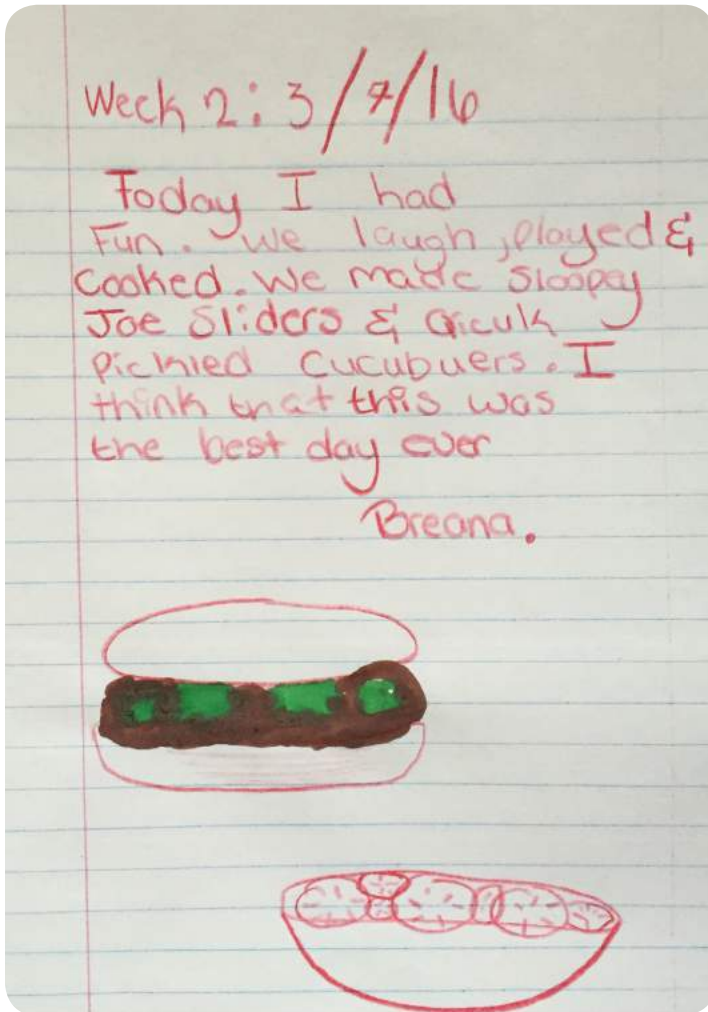 Week 2: 3/7/16
Today I had
Fun. We laugh, played &
Cooked. We made Sloopey
Joe Sliders & Qiculk
pickled cucubuers. I
think that this was
the best day ever
Breana.